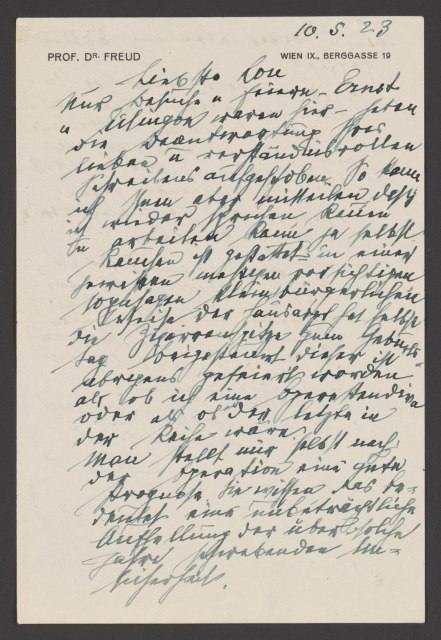 10. 5. 23
PROF. DR. FREUD
WIEN IX., BERGGASSE 19
Liebste Lou
Nur Besuche u Feiern – Ernst
u Eitingon waren hier – haben
die Beantwortung Ihres
lieben u verständnisvollen
Schreibens aufgeschoben. So kann
ich Ihnen aber mitteilen daß
ich wieder sprechen kauen
u arbeiten kann, ja selbst
Rauchen ist gestattet – in einer
gewissen mäßigen vorsichtigen
sozusagen kleinbürgerlichen
Weise. Der Hausarzt hat selbst
die Zigarrenspitze zum Geburts-
tag beigesteuert dieser ist
übrigens gefeiert worden
als ob ich eine Operettendiva
oder als ob der letzte in
der Reihe wäre.
Man stellt mir selbst nach
der Operation eine gute
Prognose, Sie wissen das be-
deutet eine unbeträchtliche
Aufhellung der über solche
Jahre schwebenden Un-
sicherheit.